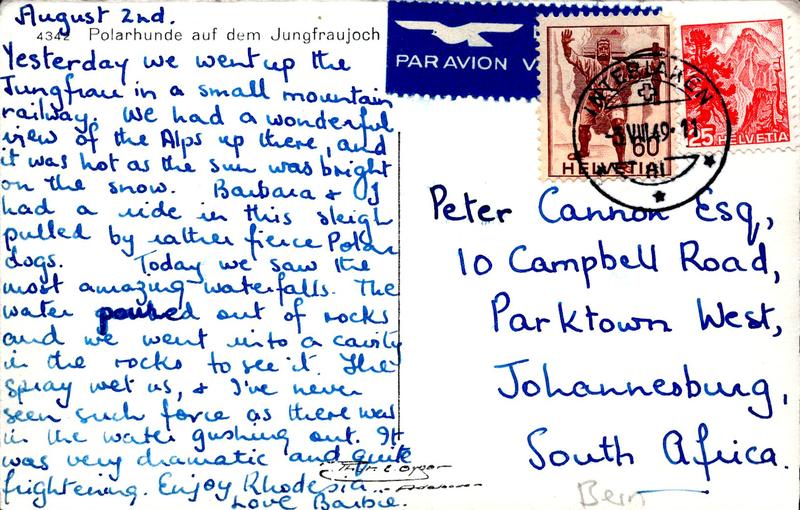 August 2nd.
4342 Polarhunde auf dem Jungfraujoch
Yesterday we went up the
Jungfrau in a small mountain
railway. We had a wonderful
view of the Alps up there, and
it was hot as the sun was bright
on the snow. Barbara & I
had a ride in this sleigh
pulled by rather fierce Polar
dogs. Today we saw the
most amazing waterfalls. The
water poured out of rocks
and we went into a cavity
in the rocks to see it. The
spray wet us, & I've never
seen such force as there was
in the water gushing out. It
was very dramatic and quite
frightening. Enjoy Rhodesia
Love Barbie.
PAR AVION
60
HELVETIA
25 HELVETIA
INTERLAKEN
VIII 49-11
Peter Cannon Esq,
10 Campbell Road,
Parktown West,
Johannesburg,
South Africa.
Bern